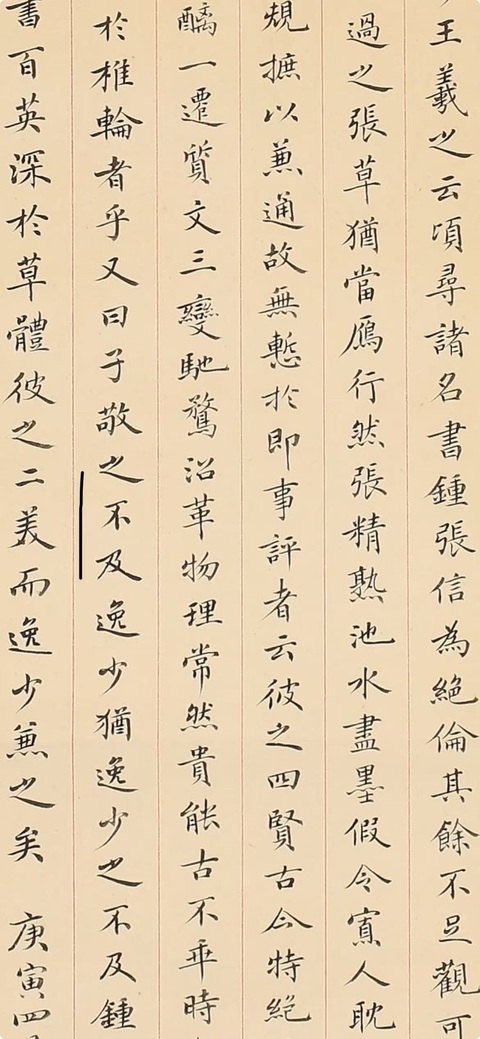 王羲之云頃尋諸名書鍾張信為絕倫其餘不足觀可
過之張草猶當鴈行然張精熟池水盡墨假令寡人耽
規摭以兼通故無慙於即事評者云彼之四賢古今特絕
醨一遷質文三變馳騖沿革物理常然貴能古不乖時
於椎輪者乎又曰子敬之不及逸少猶逸少之不及鍾
書百英深於草體彼之二美而逸少兼之矣 庚寅四